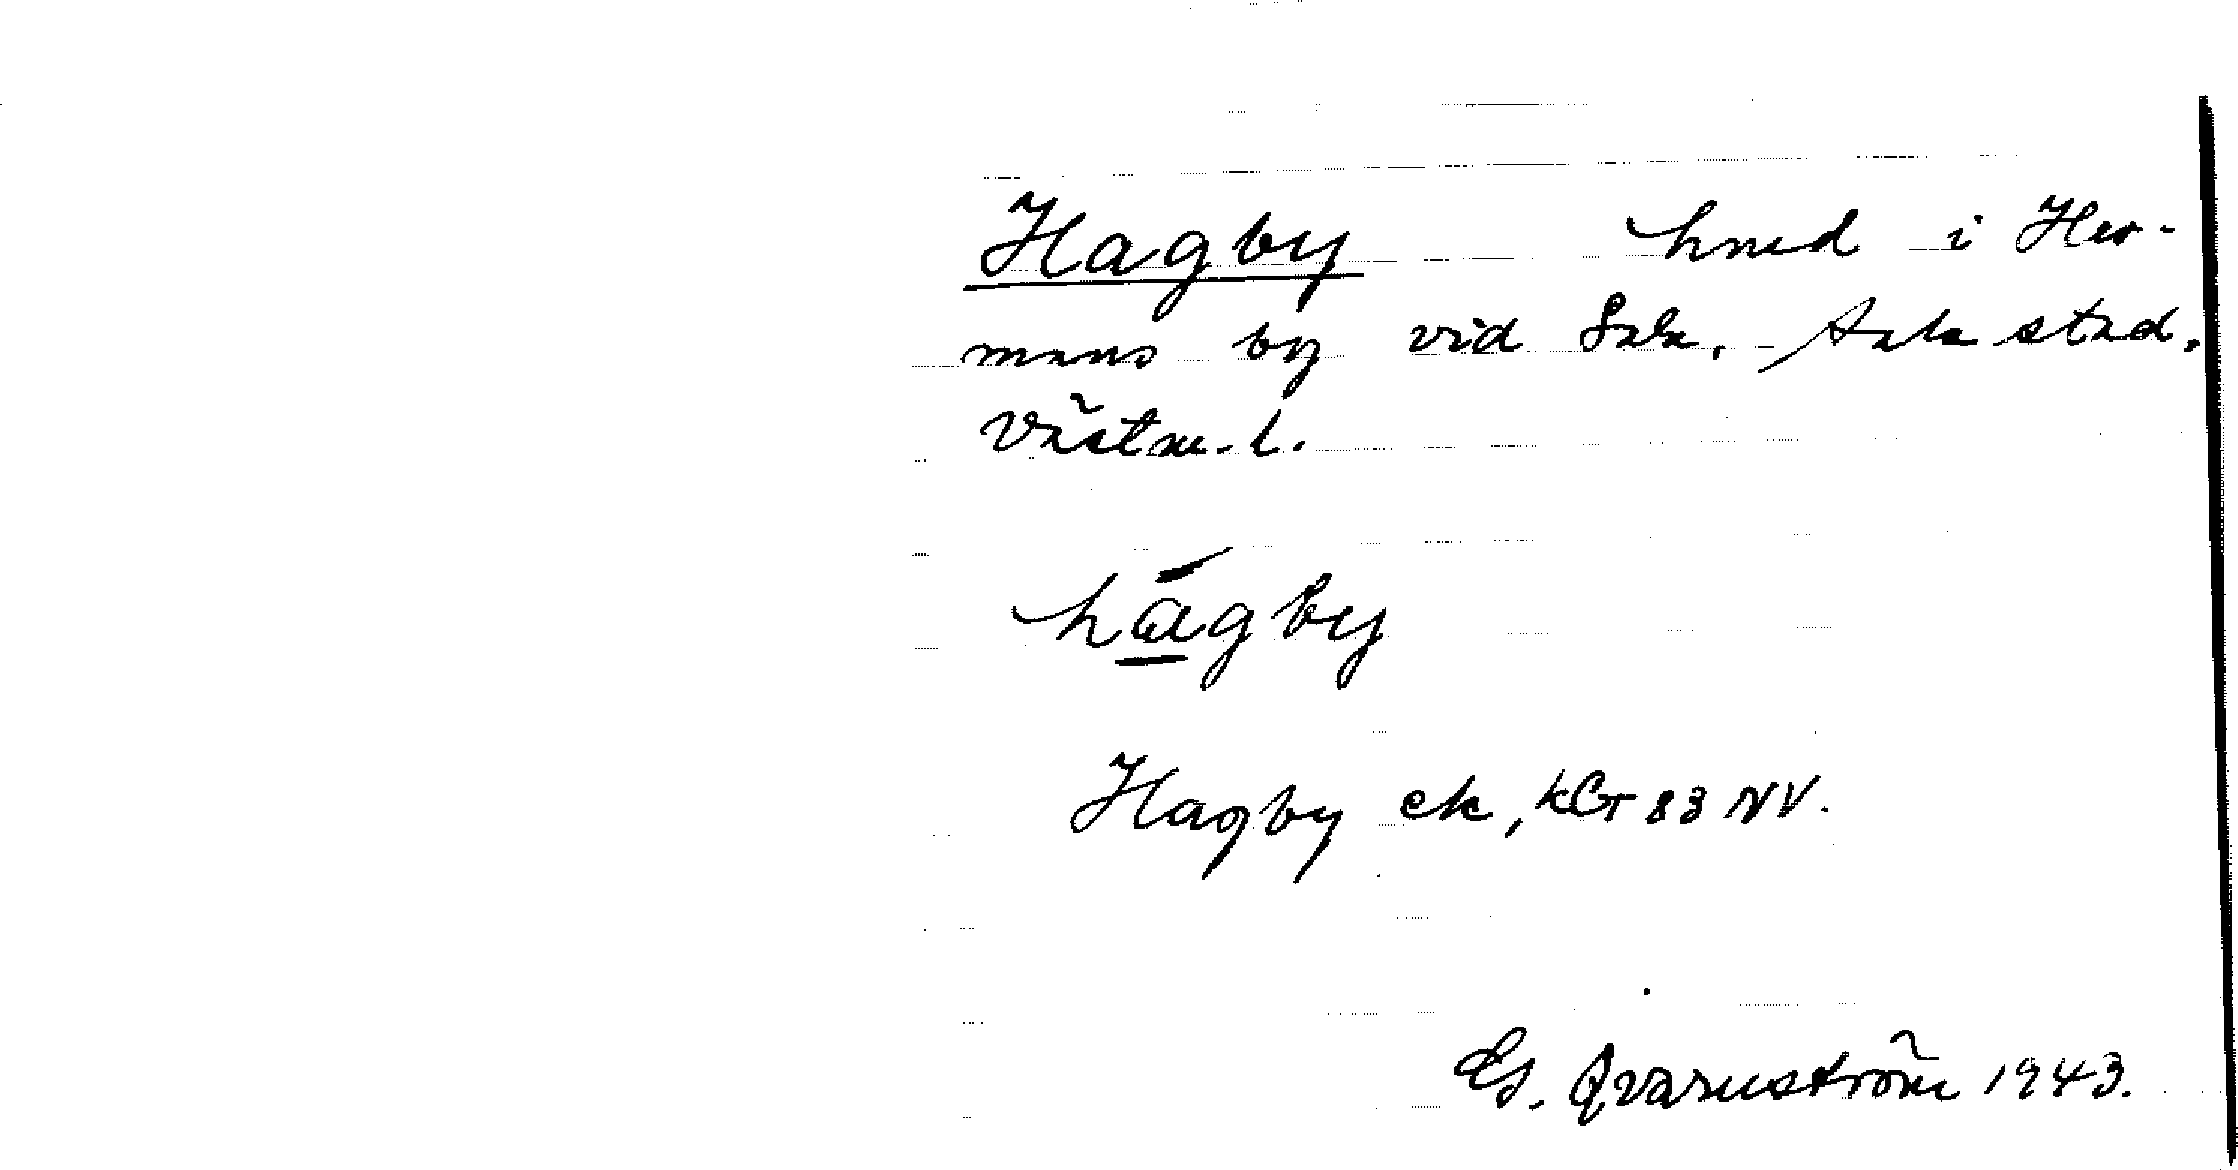 Hagby hmd i Her-
mans by vid Sala, Sala stad,
Västm. l.
hágby
Hagby ek, kGT 83 NV.
G. Qvarnström 1943.